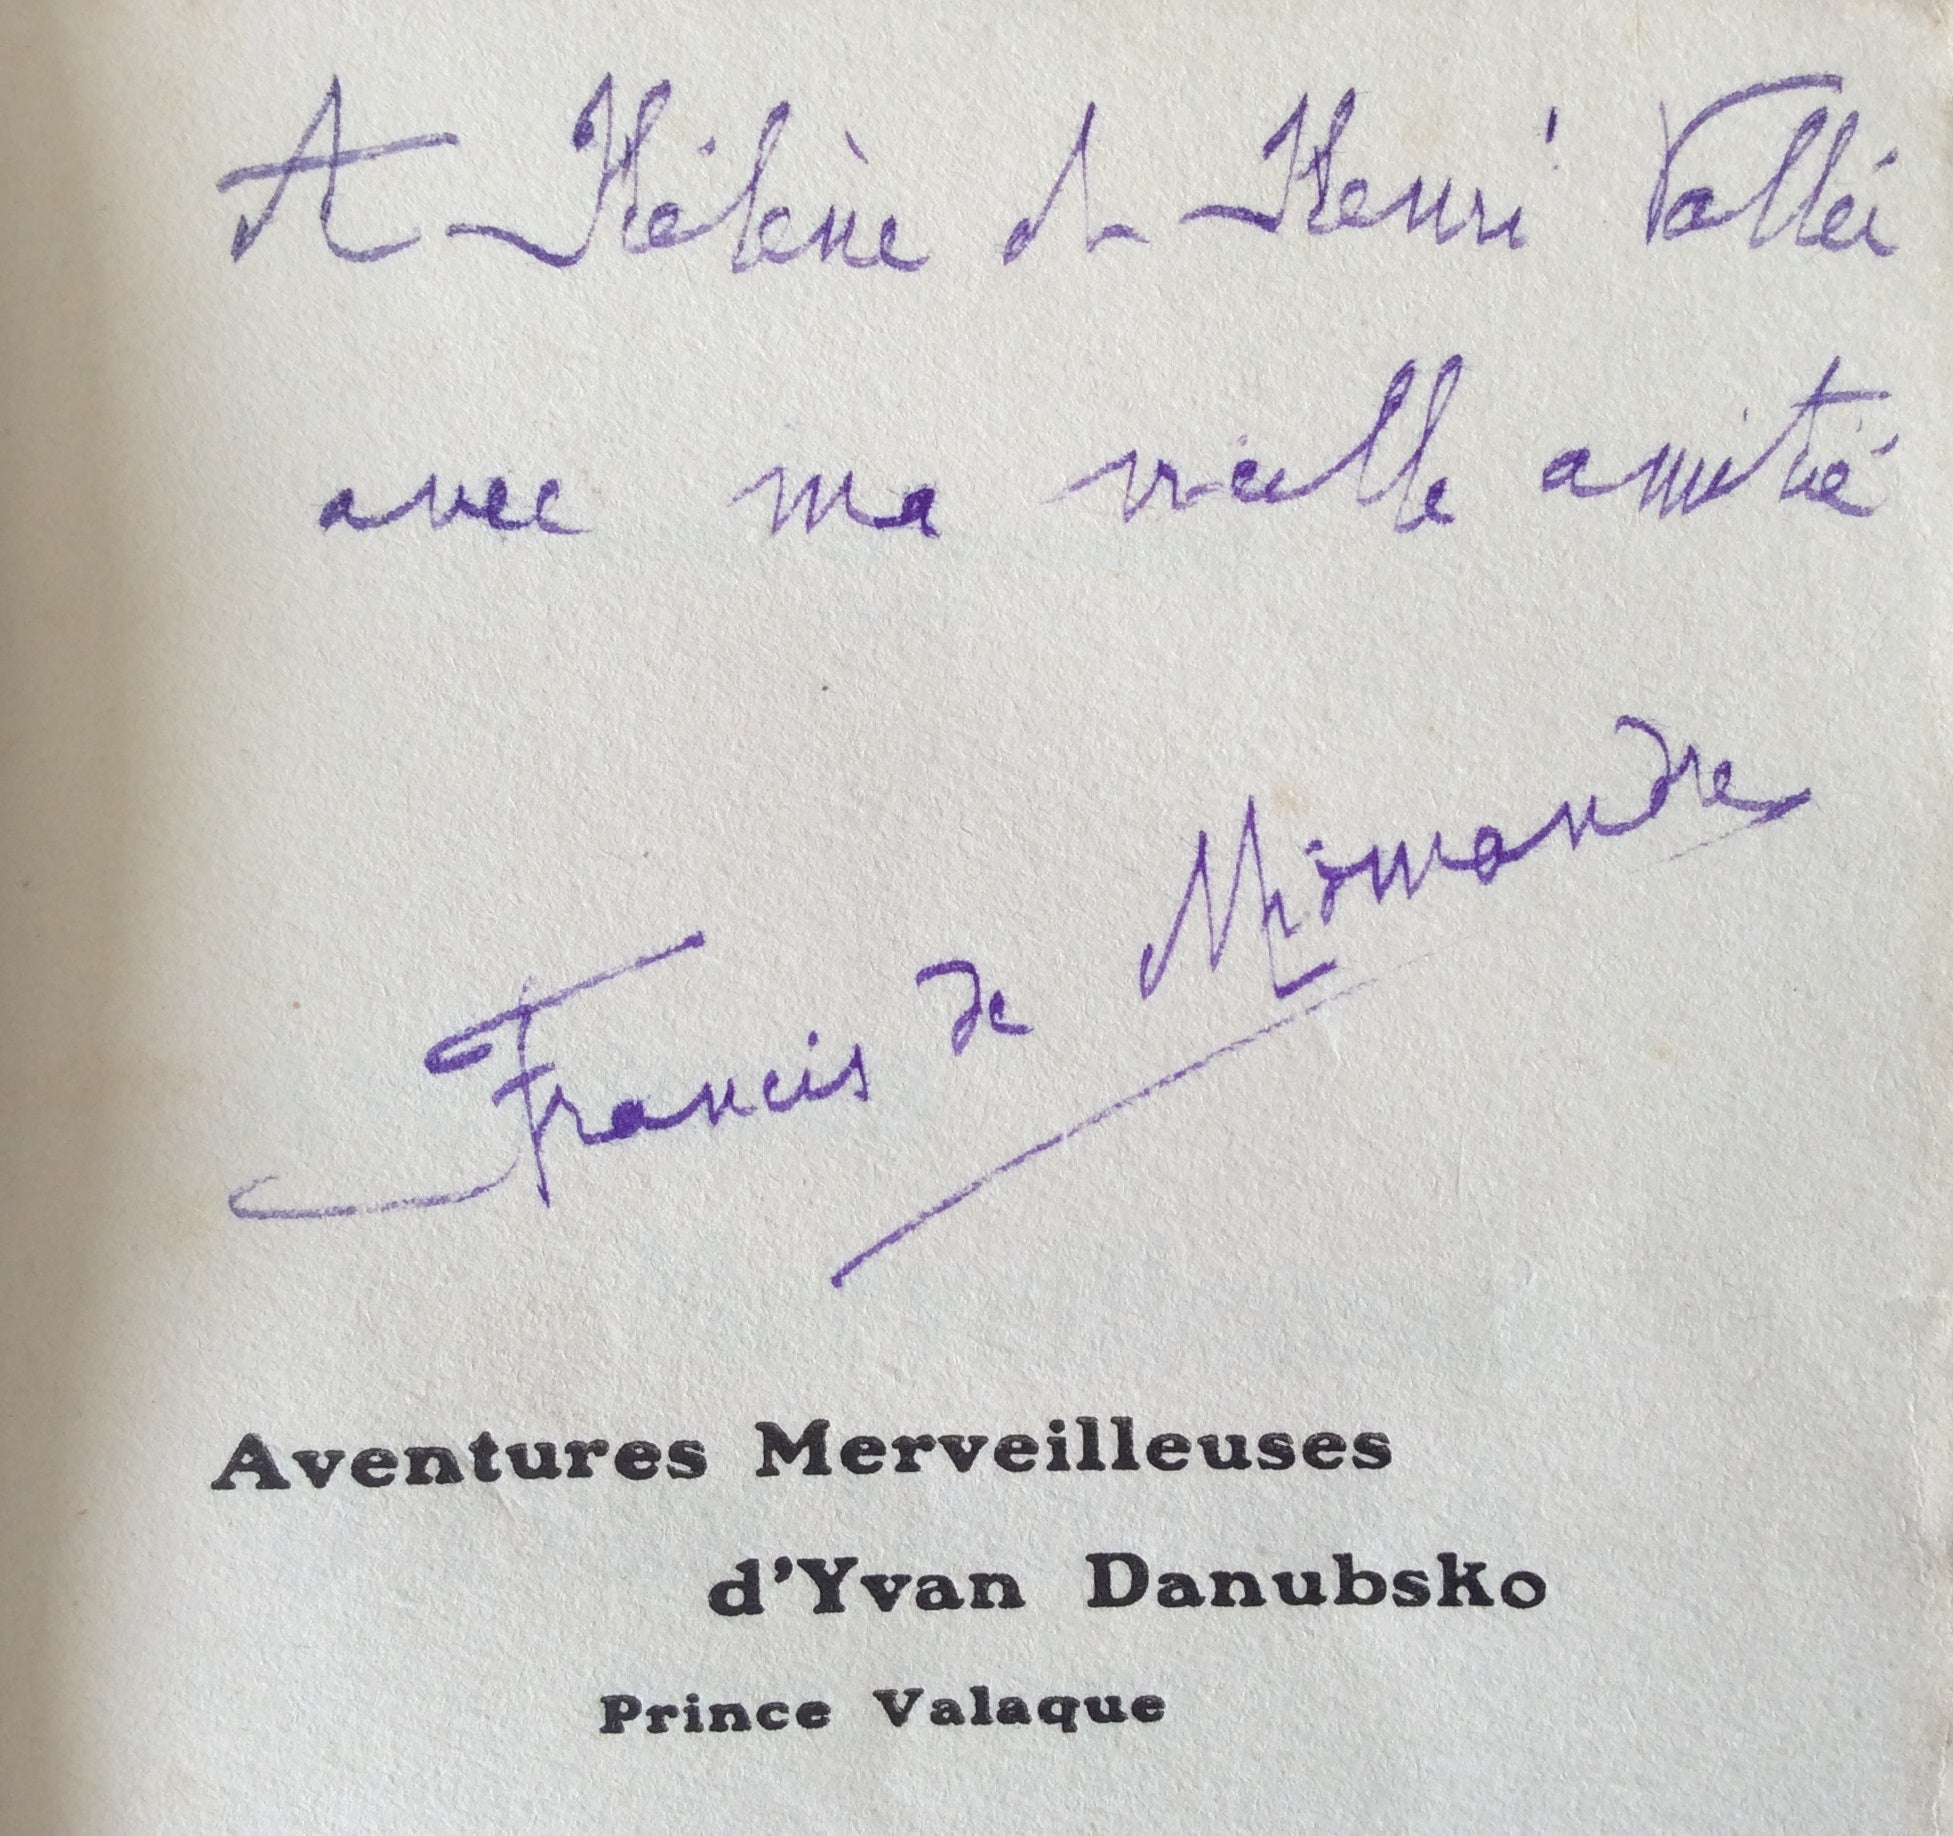 A Hélène et Henri Vallée
avec ma vieille amitié
Francis de Miomandre
Aventures Merveilleuses
d'Yvan Danubsko
Prince Valaque